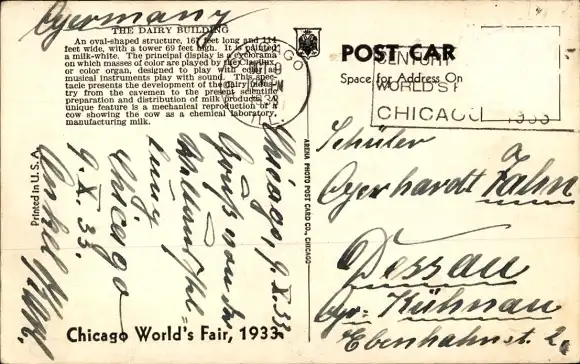 Germany
THE DAIRY BUILDING
An oval-shaped structure, 167 feet long and 114
feet wide, with a tower 69 feet high. It is painted
a milk-white. The principal display is a cyclorama
on which masses of color are played by the Clavilux,
or color organ, designed to play with color as
musical instruments play with sound. This spec-
tacle presents the development of the dairy indus-
try from the cavemen to the present scientific
preparation and distribution of milk products. A
unique feature is a mechanical reproduction of a
cow showing the cow as a chemical laboratory,
manufacturing milk.
POST CAR
Space for Address On
CENTURY
WORLD'S F
CHICAGO 1933
Chicago, 9.X.33.
Gruß von der
Chicago
9.X.33.
Onkel
Printed in U.S.A.
ARENA PHOTO POST CARD CO., CHICAGO
Schüler
Gerhardt Zahn
Dessau
Gr: Kühnau
Ebenhahnst. 2.
Chicago World's Fair, 1933